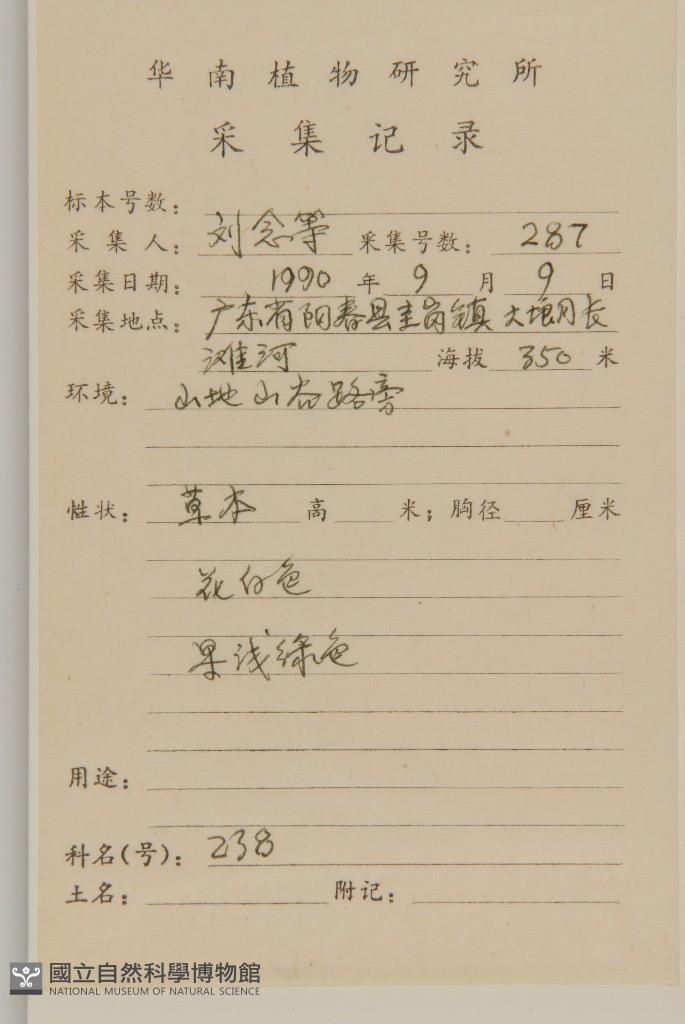 华南植物研究所
采集记录
标本号数：
采集人：刘念等 采集号数：287
采集日期：1990年9月9日
采集地点：广东省阳春县圭岗镇大垠月长
滩河 海拔350米
环境：山地山谷路旁
性状：草本 高 米；胸径 厘米
花白色
果浅绿色
用途：
科名(号)：238
土名： 附记：
國立自然科學博物館
NATIONAL MUSEUM OF NATURAL SCIENCE